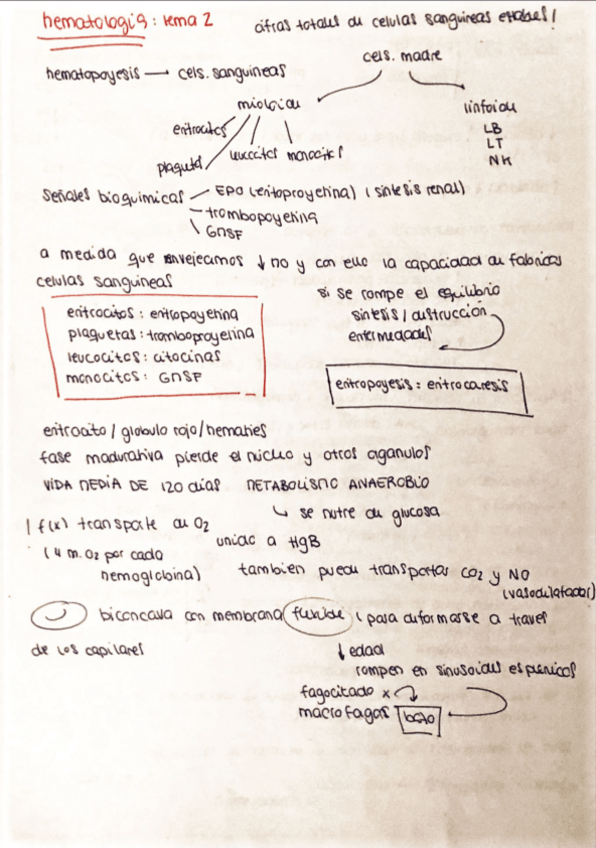 hematologia: tema 2
cifras totales de celulas sanguineas estables!
cels. madre
hematopoyesis → cels. sanguineas
mieloide
linfoide
eritrocitos
LB
LT
plaquetas
leucocitos
monocitos
NK
Señales bioquimicas
EPO (eritoproyetina) (sintesis renal)
trombopoyetina
GMSF
a medida que envejecemos ↓ no y con ello la capacidad de fabricar
celulas sanguineas
si se rompe el equilibrio
sintesis / destruccion
enfermedades
eritrocitos: eritropoyetina
plaquetas: tromboproyetina
leucocitos: citocinas
monocitos: GMSF
eritropoyesis = eritrocaresis
eritrocito / globulo rojo / hematies
fase madurativa pierde el nucleo y otros organulos
VIDA MEDIA DE 120 dias METABOLISMO ANAEROBIO
↳ se nutre de glucosa
! f(x) transporte de O2
unido a HgB
(4 m. O2 por cada
hemoglobina)
tambien puede transportar CO2 y NO
(vasodilatador)
biconcava con membrana flexible (para deformarse a traves
de los capilares
↓ edad
rompen en sinusoides esplenicos
fagocitado x
macrofagos
bazo